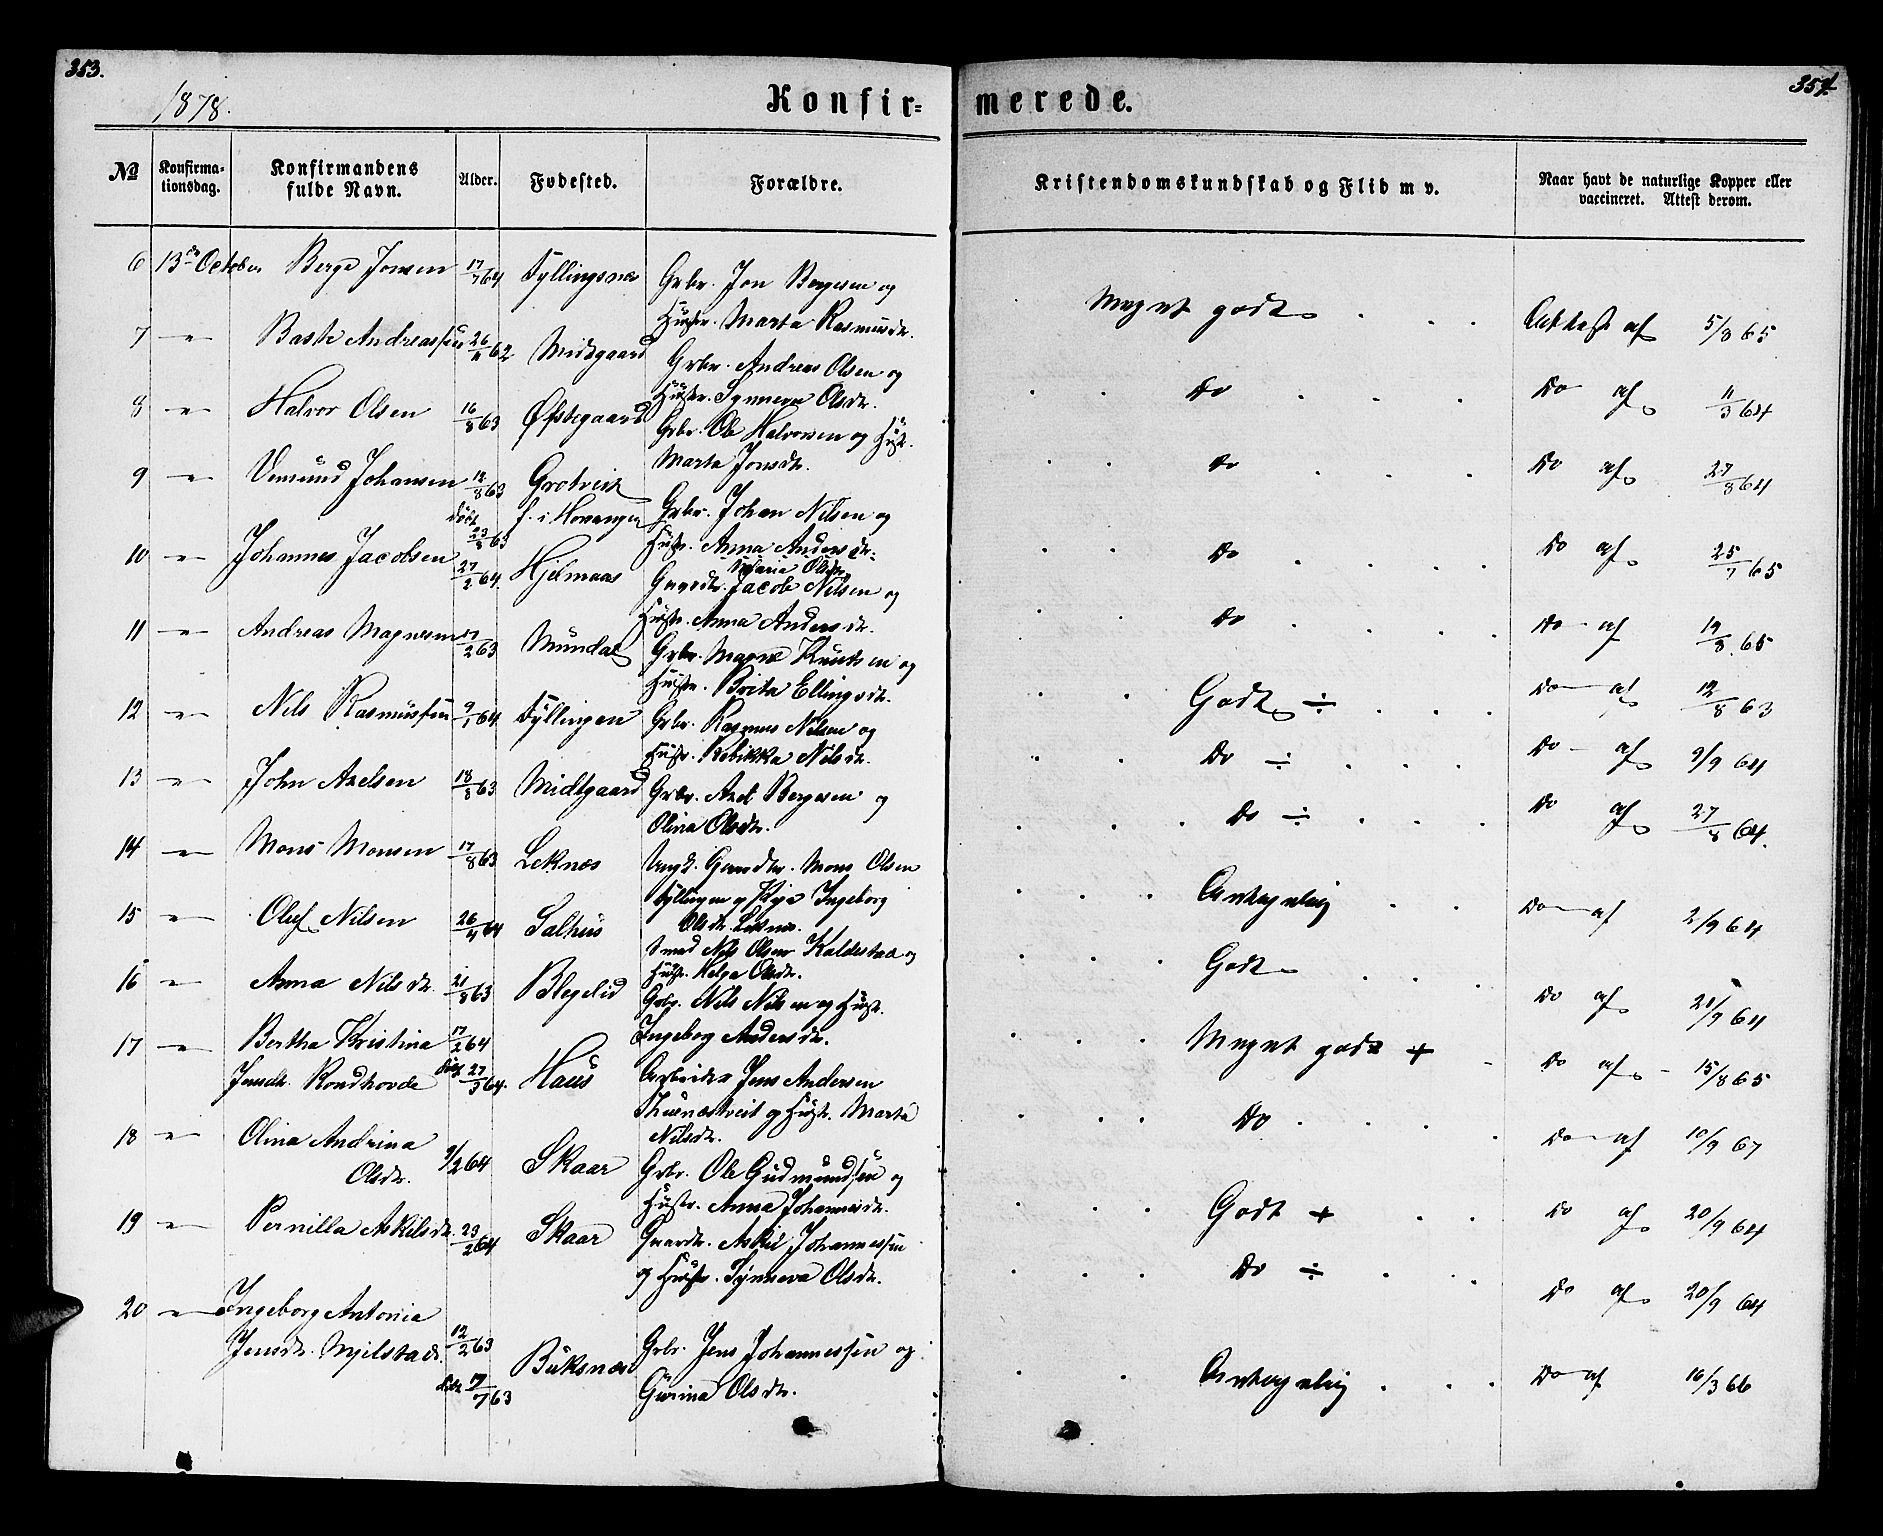 353.
1878.
Konfir-
merede.
354
No
Konfirma-
tionsdag.
Konfirmandens
fulde Navn.
Alder.
Fødested.
Forældre.
Kristendomskundskab og Flid m v.
Naar havt de naturlige Kopper eller
vaccineret. Attest derom.
6 13de October Berge Jonsen 17/7 64 Fyllingsnes Grbr. Jon Bergesen og
Hustr. Marta Rasmusdr.
Meget godt Attest af 5/8 65
7 " Andreassen 26/ 62 Midtgaard Grbr. Andreas Olsen og
Hustr. Synneva Olsdr.
Do Do af 11/3 64
8 " Halvor Olsen 16/8 63 Øfstegaard Grbr. Ole Halvorsen og Hust.
Marta Jonsdr.
Do Do af 27/8 64
9 " Vemund Johansen 12/8 63 Grotvik Grbr. Johan Nilsen og
døbt 23/8 63 f. i Hosanger Hustr. Anna Andersdr.
Maria Olsdr.
Do Do af 25/7 65
10 " Johannes Jacobsen 27/2 64 Hjelmaas Gaardr. Jacob Nilsen og
Hustr. Anna Andersdr.
Do Do af 19/8 65
11 " Andreas Magnesen 17/2 63 Mundal Grbr. Magne Knutsen og
Hustr. Brita Ellingsdr.
Godt ÷ Do af 12/8 63
12 " Nils Rasmussen 9/1 64 Fyllingen Grbr. Rasmus Nilsen og
Hustr. Rebikka Nilsdr.
Do ÷ Do af 9/9 64
13 " John Axelsen 18/8 63 Midtgaard Grbr. Axel Bergesen og
Olina Olsdr.
Do ÷ Do af 27/8 64.
14 " Mons Monsen 17/8 63 Leknes Ungk. Gaardbr. Mons Olsen
Fyllingen og Pige Ingeborg
Olsdr. Leknes.
Antagelig Do af 2/9 64
15 " Oluf Nilsen 26/4 64 Salhus Smed Nils Olsen Kaldestad og
Hustr. Helga Olsdr.
Godt Do af 21/9 64
16 " Anna Nilsdr. 21/8 63 Blegelid Grbr. Nils Nilsen og Hustr.
Ingeborg Andersdr.
Meget godt + Do af 15/8 65
17 " Bertha Kristina 17/2 64
Jensdr. Rondhovde døbt 27/3 64. Haus Arbeider Jens Andersen
og Hustr. Marta
Nilsdr.
Do Do af 10/9 67
18 " Olina Andrina
Olsdr. 9/2 64 Skaar Grbr. Ole Gudmundsen og
Hustr. Anna Johannesdr.
Godt + Do af 20/9 64
19 " Pernilla Askilsdr. 23/2 64 Skaar Gaardr. Askil Johannessen
og Hustr. Synneva Olsdr.
Do ÷ Do af 20/9 64
20 " Ingeborg Antonia
Jensdr. Mjelstad. 12/2 63 Buksnes Grbr. Jens Johannessen og
døbt 7/7 63 Gurina Olsdr.
Antagelig Do af 16/3 66